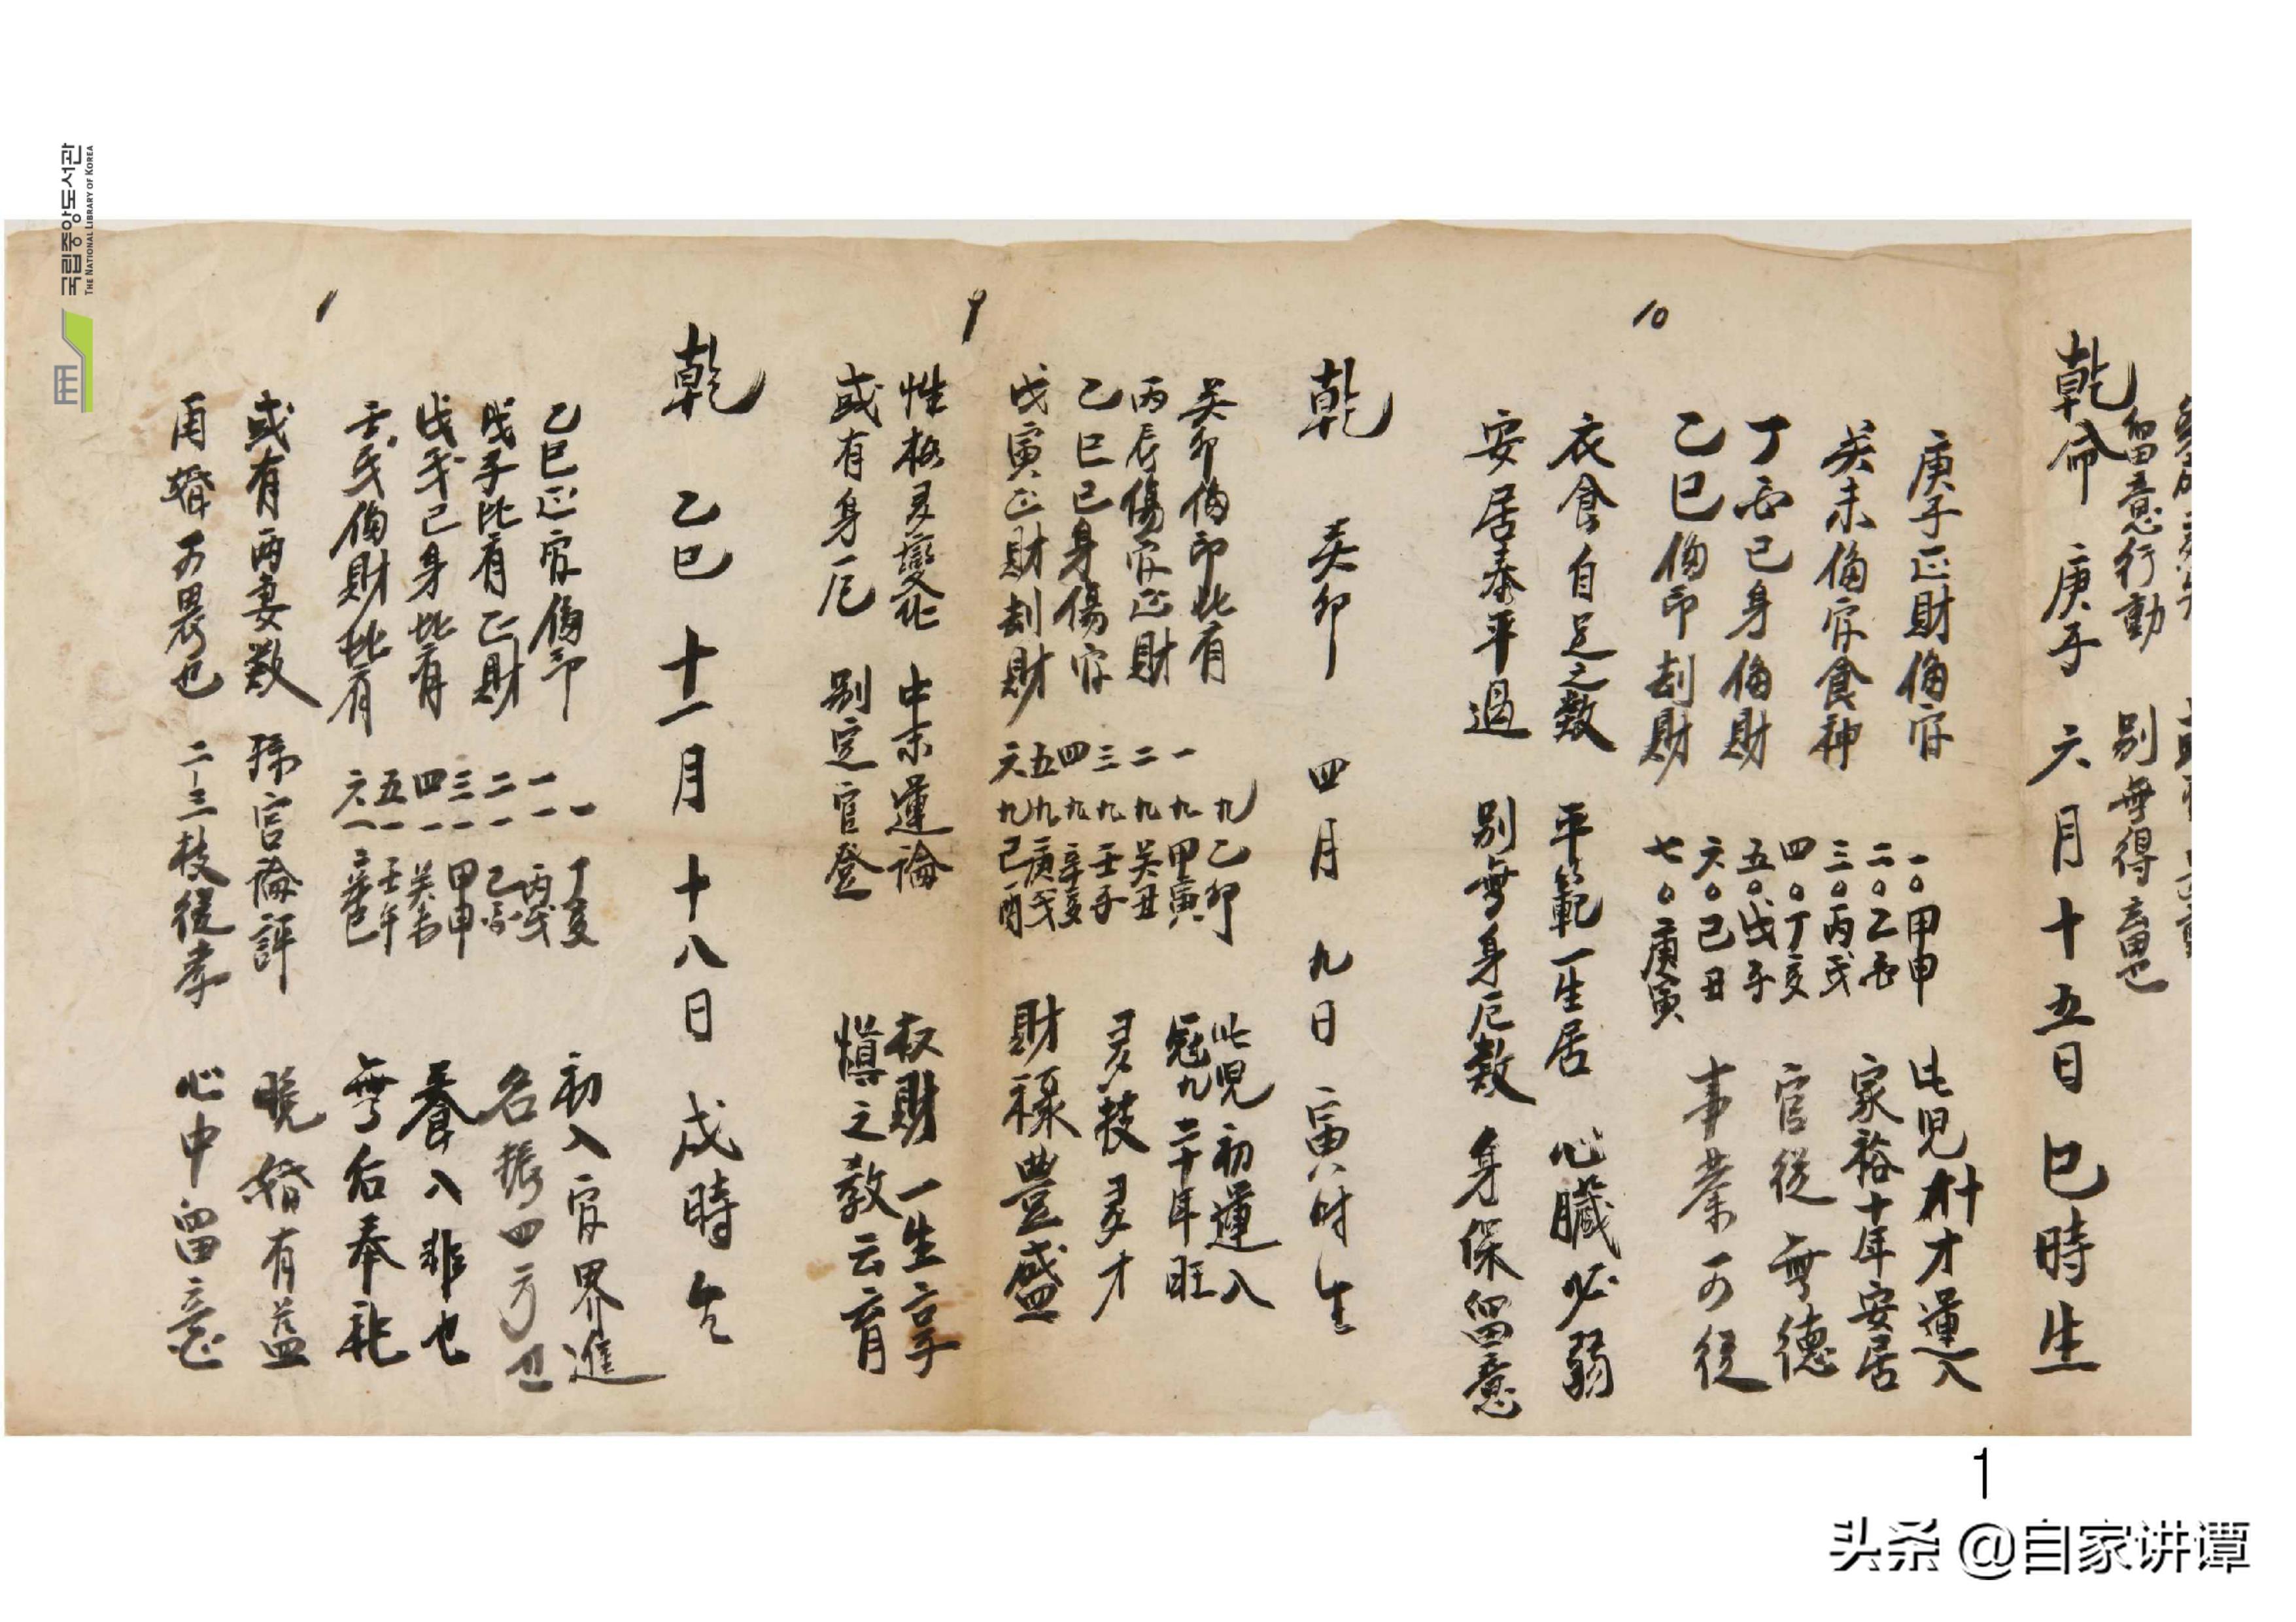 留意行動 別無得意也
乾命 庚子 六月十五日 巳時生
庚子正財偏官
癸未偏官食神
丁酉己身偏財
乙巳偏印刦財
一〇甲申
二〇乙酉
三〇丙戌
四〇丁亥
五〇戊子
六〇己丑
七〇庚寅
此児 才運入
家裕十年安居
官從無德
事業可從
衣食自足之数 平範一生居 心臟必弱
安居泰平過 別無身厄数 身保留意
10
乾 癸卯 四月 九日 寅时生
癸卯偏印比肩
丙辰傷官正財
乙巳己身傷官
戊寅正財刦財
九乙卯
一九甲寅
二九癸丑
三九壬子
四九辛亥
五九庚戌
六九己酉
此児 初運入
冠九二十年旺
多技多才
財祿豊盛
性格多變化 中末運論 权財一生享
或有身厄 別定官登 慎之敎云育
9
乾 乙巳 十一月 十八日 戌時生
乙巳正官偏印
戊子比肩正財
戊戌己身比肩
壬戌偏財比肩
一丁亥
一一丙戌
二一乙酉
三一甲申
四一癸未
五一壬午
六一辛巳
初入官界進
名振四方
養入非也
無后奉祀
或有両妻数 孫官論評 晚婚有益
再婚可畏也 二三枝從孝 心中留意
1
국립중앙도서관
THE NATIONAL LIBRARY OF KOREA
1
头条 @自家讲谭